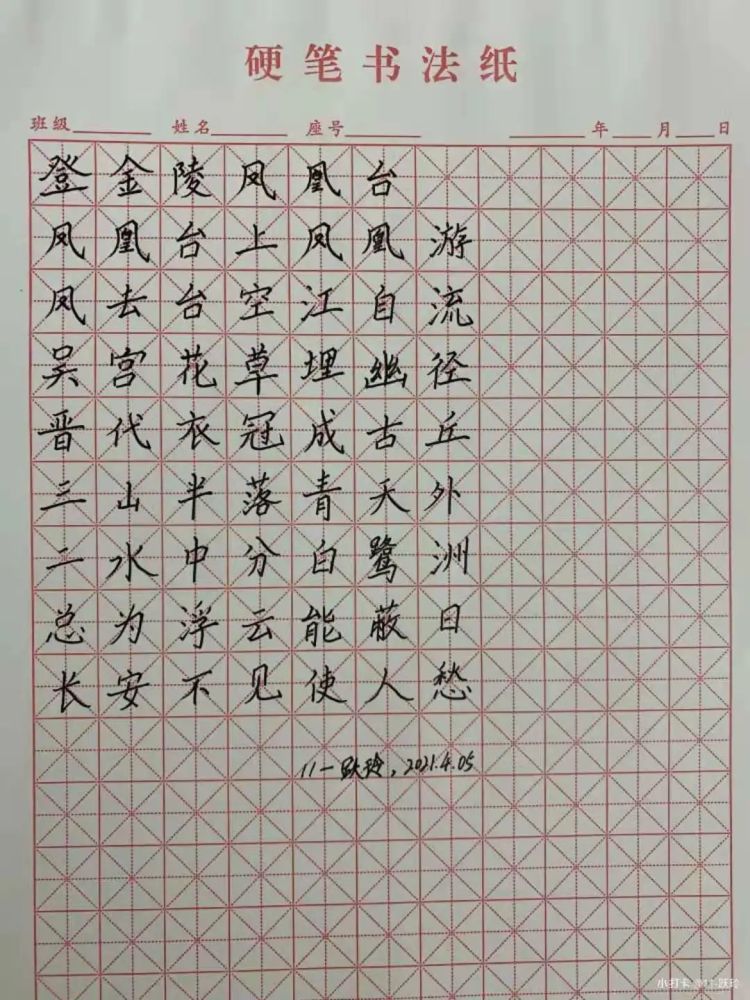 硬笔书法纸
班级 姓名 座号 年 月 日
登金陵凤凰台
凤凰台上凤凰游
凤去台空江自流
吴宫花草埋幽径
晋代衣冠成古丘
三山半落青天外
二水中分白鹭洲
总为浮云能蔽日
长安不见使人愁
11一跃玲，2021.4.05
小打卡